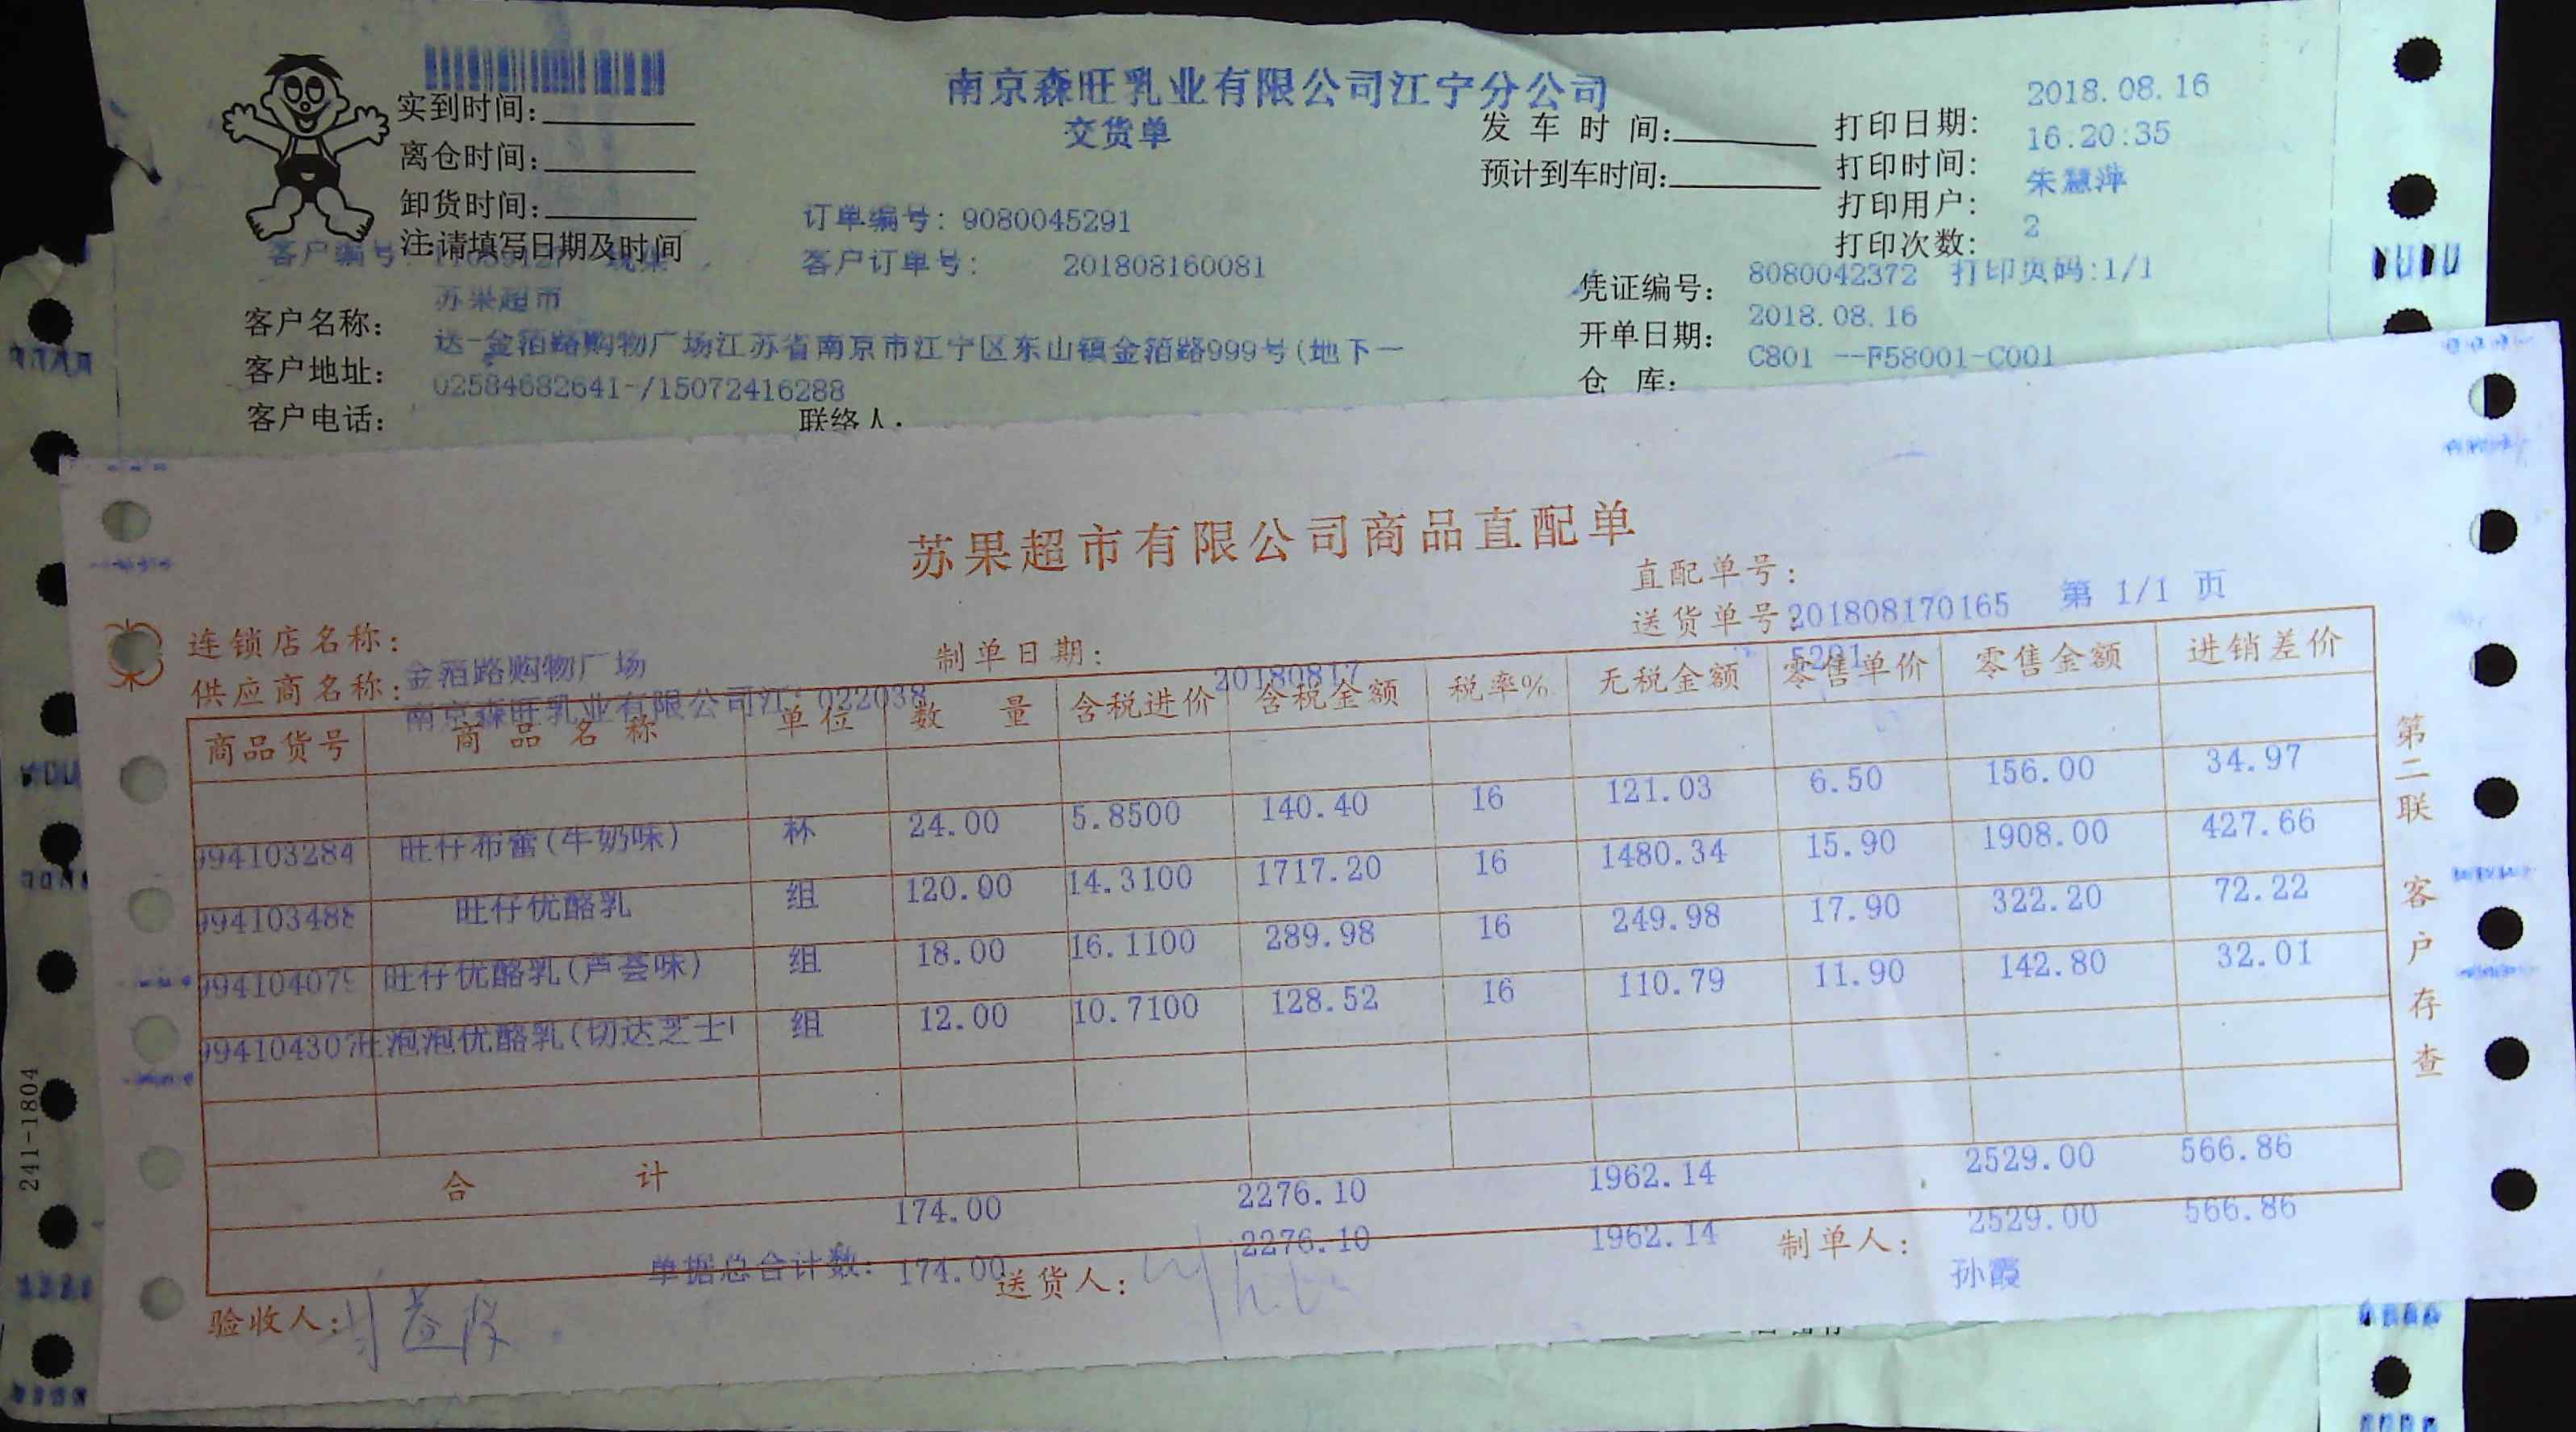 南京森旺乳业有限公司江宁分公司
交货单
实到时间:
离仓时间:
卸货时间:
注:请填写日期及时间
发车时间:
预计到车时间:
打印日期: 2018.08.16
打印时间: 16:20:35
打印用户: 朱慧萍
打印次数: 2
订单编号: 9080045291
客户订单号: 201808160081
客户编号
凭证编号: 8080042372 打印页码:1/1
开单日期: 2018.08.16
仓 库: C801 --F58001-C001
客户名称: 苏果超市
客户地址: 送-金箔路购物广场江苏省南京市江宁区东山镇金箔路999号(地下一
客户电话: 02584682641-/15072416288
联络人:
苏果超市有限公司商品直配单
直配单号: 201808170165 第 1/1 页
送货单号: 5201
连锁店名称: 金箔路购物广场
制单日期: 20180817
供应商名称: 南京森旺乳业有限公司江: 022038
商品货号 商品名称 单位 数量 含税进价 含税金额 税率% 无税金额 零售单价 零售金额 进销差价
994103284 旺仔布蕾(牛奶味) 杯 24.00 5.8500 140.40 16 121.03 6.50 156.00 34.97
99410348 旺仔优酪乳 组 120.00 14.3100 1717.20 16 1480.34 15.90 1908.00 427.66
99410407 旺仔优酪乳(芦荟味) 组 18.00 16.1100 289.98 16 249.98 17.90 322.20 72.22
994104307 旺泡泡优酪乳(切达芝士 组 12.00 10.7100 128.52 16 110.79 11.90 142.80 32.01
合计 174.00 2276.10 1962.14 2529.00 566.86
单据总合计数: 174.00 2276.10 1962.14 2529.00 566.86
验收人:
送货人:
制单人: 孙霞
第二联 客户存查
241-1804